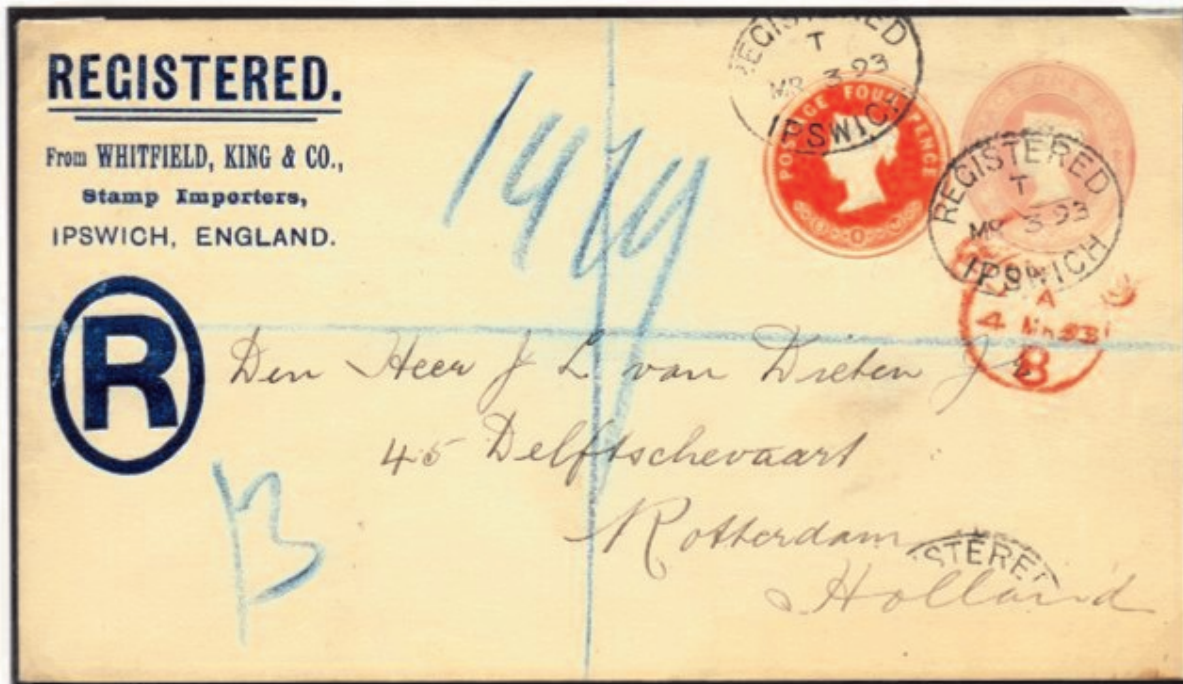 REGISTERED.
From WHITFIELD, KING & CO.,
Stamp Importers,
IPSWICH, ENGLAND.
R
REGISTERED
T
MR 3 93
IPSWICH
POSTAGE FOUR PENCE
REGISTERED
T
MR 3 93
IPSWICH
A
4 MR 93
8
Den Heer J L van Dieten Jr
45 Delftschevaart
Rotterdam
Holland
ISTERED
B